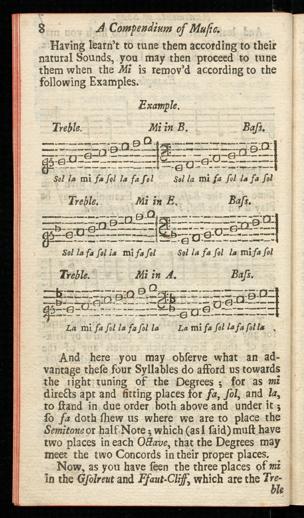 8 A Compendium of Muſic.
Having learn't to tune them according to their
natural Sounds, you may then proceed to tune
them when the Mi is remov'd according to the
following Examples.
Example.
Treble. Mi in B. Baſs.
Sol la mi fa ſol la fa ſol Sol la mi fa ſol la fa ſol
Treble. Mi in E. Baſs.
Sol la fa ſol la mi fa ſol Sol la fa ſol la mi fa ſol
Treble. Mi in A. Baſs.
La mi fa ſol la fa ſol la La mi fa ſol la fa ſol la
And here you may obſerve what an ad-
vantage theſe four Syllables do afford us towards
the right tuning of the Degrees; for as mi
directs apt and fitting places for fa, ſol, and la,
to ſtand in due order both above and under it;
ſo fa doth ſhew us where we are to place the
Semitone or half Note; which (as I ſaid) muſt have
two places in each Octave, that the Degrees may
meet the two Concords in their proper places.
Now, as you have ſeen the three places of mi
in the Gſolreut and Ffaut-Cliff, which are the Tre-
ble